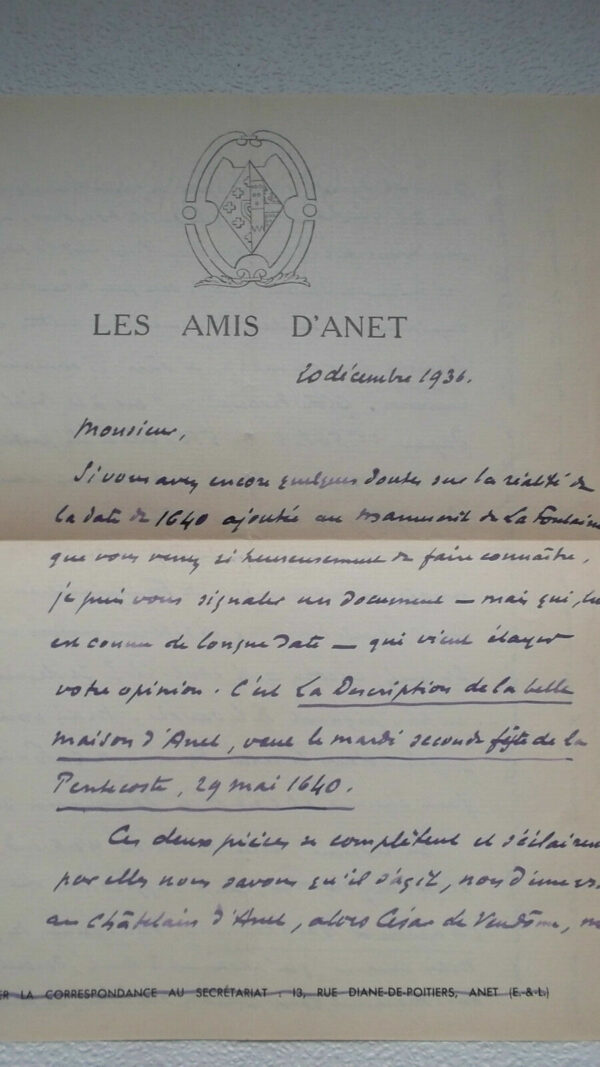 LES AMIS D'ANET
20 décembre 1936.
Monsieur,
Si vous avez encore quelques doutes sur la réalité de
la date de 1640 ajoutée au manuscrit de La Fontaine
que vous venez si heureusement de faire connaître,
je puis vous signaler un document — mais qui, lui
est connu de longue date — qui vient étayer
votre opinion. C'est La Description de la belle
maison d'Anet, veue le mardi seconde feste de la
Pentecoste, 29 mai 1640.
Ces deux pièces se complètent et s'éclairent
par elles nous savons qu'il s'agit, non d'une
au Châtelain d'Anet, alors César de Vendôme,
ER LA CORRESPONDANCE AU SECRÉTARIAT : 13, RUE DIANE-DE-POITIERS, ANET (E.-&-L.)